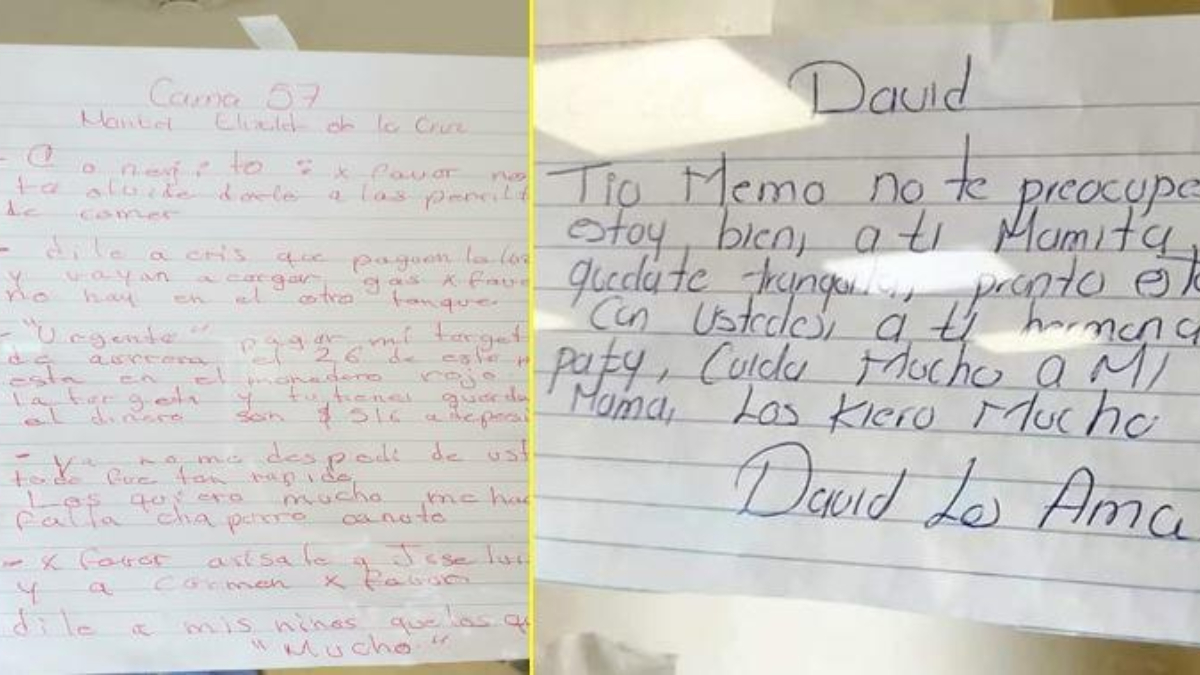 Cama 57
de la Cruz
x favor no
las
de comer
- dile a cris que paguen la luz
y vayan a cargar gas x favo
no hay en el otro tanque.
- "Urgente" pagar mi target
de aorrera el 26 de este m
esta en el monedero rojo
la targeta y tu tienes guarda
el dinero son $516 a deposi
- Ya no me despedi de ust
todo fue tan rapido
Los quiero mucho me hac
falta chaparro
- x favor avisale a
y a Carmen x favor
dile a mis ninos que los q
"Mucho"
David
Tio Memo no te preocupe
estoy bien, a ti Mamita,
quedate tranquila, pronto est
Con Ustedes, a ti hermana
paty, Cuida Mucho a MI
Mama, Los Kiero Mucho
David Los Ama